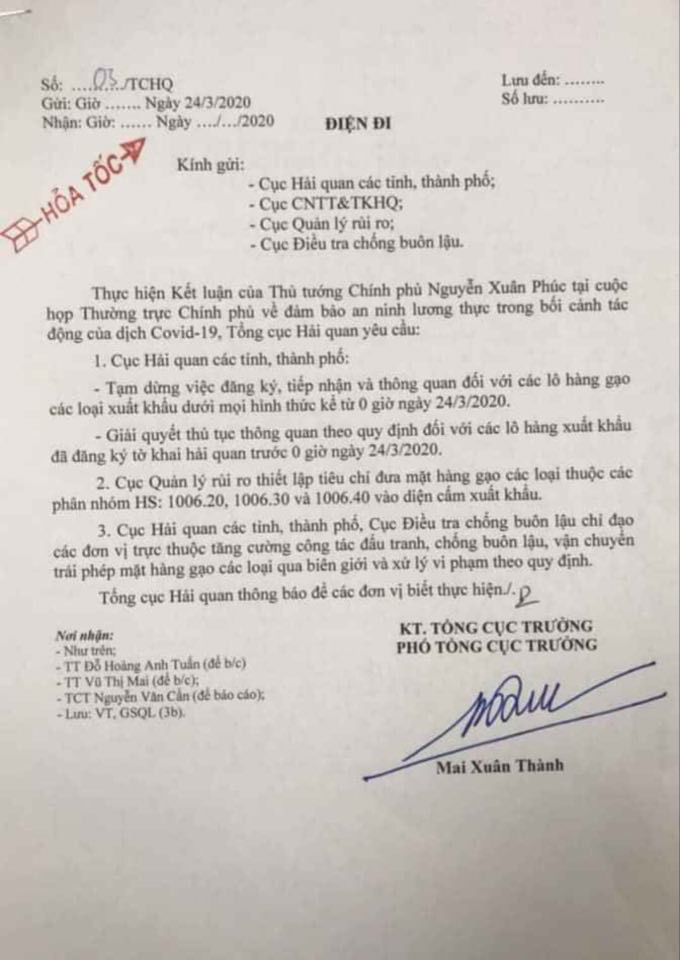 Số: ....03.../TCHQ
Lưu đến: ........
Gửi: Giờ ....... Ngày 24/3/2020
Số lưu: ..........
Nhận: Giờ: ...... Ngày .../.../2020
ĐIỆN ĐI
HỎA TỐC
Kính gửi:
- Cục Hải quan các tỉnh, thành phố;
- Cục CNTT&TKHQ;
- Cục Quản lý rủi ro;
- Cục Điều tra chống buôn lậu.
Thực hiện Kết luận của Thủ tướng Chính phủ Nguyễn Xuân Phúc tại cuộc
họp Thường trực Chính phủ về đảm bảo an ninh lương thực trong bối cảnh tác
động của dịch Covid-19, Tổng cục Hải quan yêu cầu:
1. Cục Hải quan các tỉnh, thành phố:
- Tạm dừng việc đăng ký, tiếp nhận và thông quan đối với các lô hàng gạo
các loại xuất khẩu dưới mọi hình thức kể từ 0 giờ ngày 24/3/2020.
- Giải quyết thủ tục thông quan theo quy định đối với các lô hàng xuất khẩu
đã đăng ký tờ khai hải quan trước 0 giờ ngày 24/3/2020.
2. Cục Quản lý rủi ro thiết lập tiêu chí đưa mặt hàng gạo các loại thuộc các
phân nhóm HS: 1006.20, 1006.30 và 1006.40 vào diện cấm xuất khẩu.
3. Cục Hải quan các tỉnh, thành phố, Cục Điều tra chống buôn lậu chỉ đạo
các đơn vị trực thuộc tăng cường công tác đấu tranh, chống buôn lậu, vận chuyển
trái phép mặt hàng gạo các loại qua biên giới và xử lý vi phạm theo quy định.
Tổng cục Hải quan thông báo để các đơn vị biết thực hiện./.
Nơi nhận:
- Như trên;
- TT Đỗ Hoàng Anh Tuấn (để b/c)
- TT Vũ Thị Mai (để b/c);
- TCT Nguyễn Văn Cẩn (để báo cáo);
- Lưu: VT, GSQL (3b).
KT. TỔNG CỤC TRƯỞNG
PHÓ TỔNG CỤC TRƯỞNG
Mai Xuân Thành